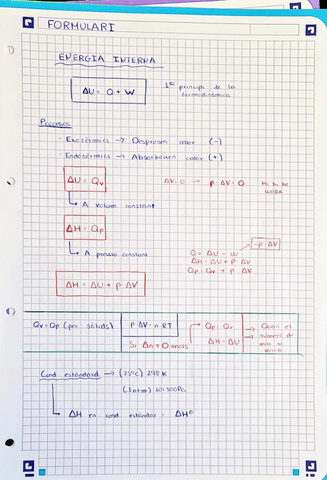 FORMULARI
ENERGIA INTERNA
ΔU = Q + W
1er principi de la termodinàmica
Processos
- Exotèrmics → Desprenen calor (-)
- Endotèrmics → Absorbeixen calor (+)
ΔU = Qv
ΔV=0 → P ΔV = 0
No hi ha
↳ A volum constant
ΔH = Qp
↳ A pressió constant
-P ΔV
Q = ΔU - W
ΔH = ΔU + P ΔV
Qp = Qv + P ΔV
ΔH = ΔU + P ΔV
Qv = Qp (per sòlids)
P ΔV = n RT
Si Δn = 0 mols
Qp Qv
ΔH = ΔU
Quan el
número de
mols no
Cond. estàndard → (25ºC) 298 K
(1 atm) 101300 Pa
↳ ΔH en cond. estàndar = ΔHº